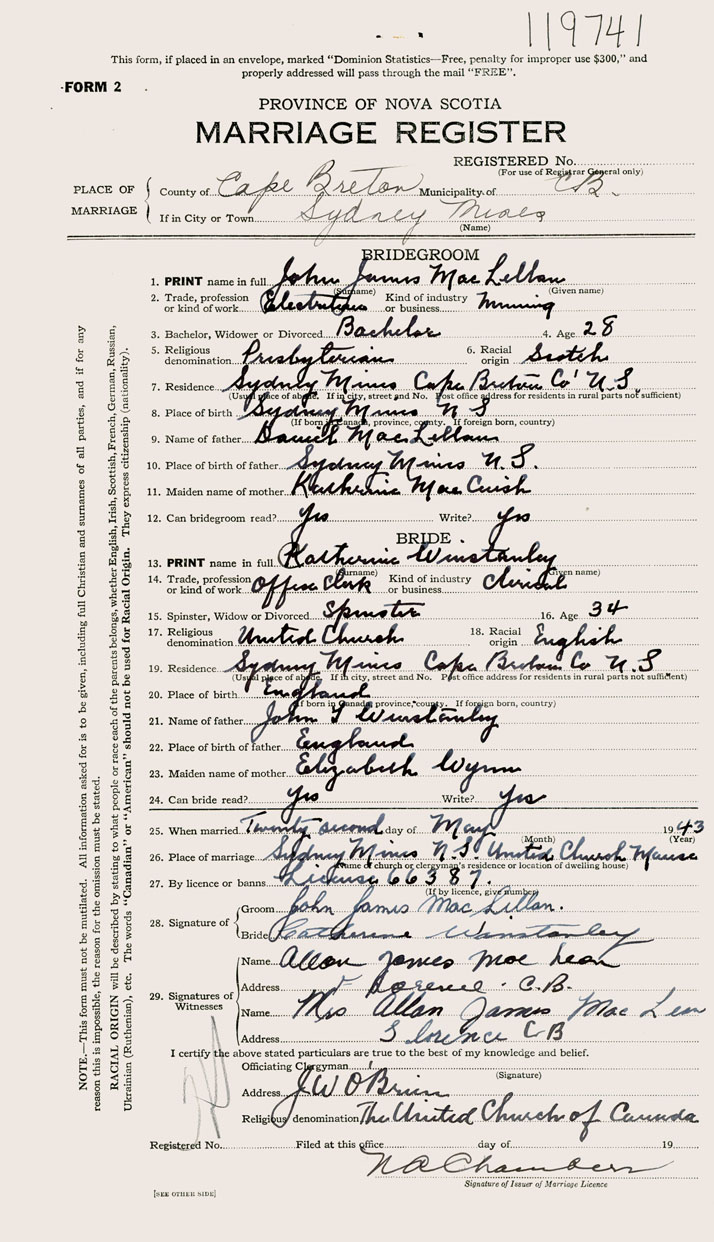 119741
This form, if placed in an envelope, marked "Dominion Statistics—Free, penalty for improper use $300," and
properly addressed will pass through the mail "FREE".
FORM 2
PROVINCE OF NOVA SCOTIA
MARRIAGE REGISTER
REGISTERED No.
(For use of Registrar General only)
PLACE OF MARRIAGE
County of Cape Breton Municipality of C.B.
If in City or Town Sydney Mines
(Name)
BRIDEGROOM
1. PRINT name in full John James MacLellan
(Surname) (Given name)
2. Trade, profession or kind of work Electrician Kind of industry or business Mining
3. Bachelor, Widower or Divorced Bachelor 4. Age 28
5. Religious denomination Presbyterian 6. Racial origin Scotch
7. Residence Sydney Mines Cape Breton Co' N.S.
(Usual place of abode. If in city, street and No. Post office address for residents in rural parts not sufficient)
8. Place of birth Sydney Mines N S
(If born in Canada, province, county. If foreign born, country)
9. Name of father Daniel MacLellan
10. Place of birth of father Sydney Mines N.S.
11. Maiden name of mother Katherine MacCuish
12. Can bridegroom read? Yes Write? Yes
BRIDE
13. PRINT name in full Katherine Winstanley
(Surname) (Given name)
14. Trade, profession or kind of work Office Clerk Kind of industry or business Clerical
15. Spinster, Widow or Divorced Spinster 16. Age 34
17. Religious denomination United Church 18. Racial origin English
19. Residence Sydney Mines Cape Breton Co N.S.
(Usual place of abode. If in city, street and No. Post office address for residents in rural parts not sufficient)
20. Place of birth England
(If born in Canada, province, county. If foreign born, country)
21. Name of father John T Winstanley
22. Place of birth of father England
23. Maiden name of mother Elizabeth Wynn
24. Can bride read? Yes Write? Yes
25. When married Twenty second day of May 1943
(Month) (Year)
26. Place of marriage Sydney Mines N.S. United Church Manse
(Name of church or clergyman's residence or location of dwelling house)
27. By licence or banns License 66387.
(If by licence, give number)
28. Signature of
Groom John James MacLellan.
Bride Catherine Winstanley
29. Signatures of Witnesses
Name Allan James MacLean
Address Florence C.B.
Name Mrs Allan James MacLean
Address Florence C B
I certify the above stated particulars are true to the best of my knowledge and belief.
Officiating Clergyman J W O'Brien
(Signature)
Address
Religious denomination The United Church of Canada
Registered No. Filed at this office day of 19
N A Chambers
Signature of Issuer of Marriage Licence
[SEE OTHER SIDE]
NOTE.—This form must not be mutilated. All information asked for is to be given, including full Christian and surnames of all parties, and if for any
reason this is impossible, the reason for the omission must be stated.
RACIAL ORIGIN will be described by stating to what people or race each of the parents belongs, whether English, Irish, Scottish, French, German, Russian,
Ukrainian (Ruthenian), etc. The words "Canadian" or "American" should not be used for Racial Origin. They express citizenship (nationality).